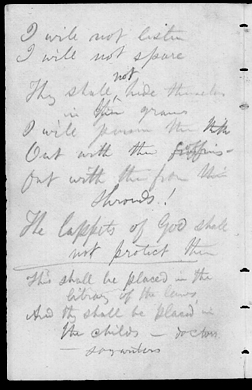 I will not listen
I will not spare
They shall not hide themselves
in their graves
I will pursue them
Out with the
Out with them from their
Shrouds!!
The Lappets of God shall
not protect them
This shall be placed in the
library of the laws
And they shall be placed in
the childs — doctors
— songwriters